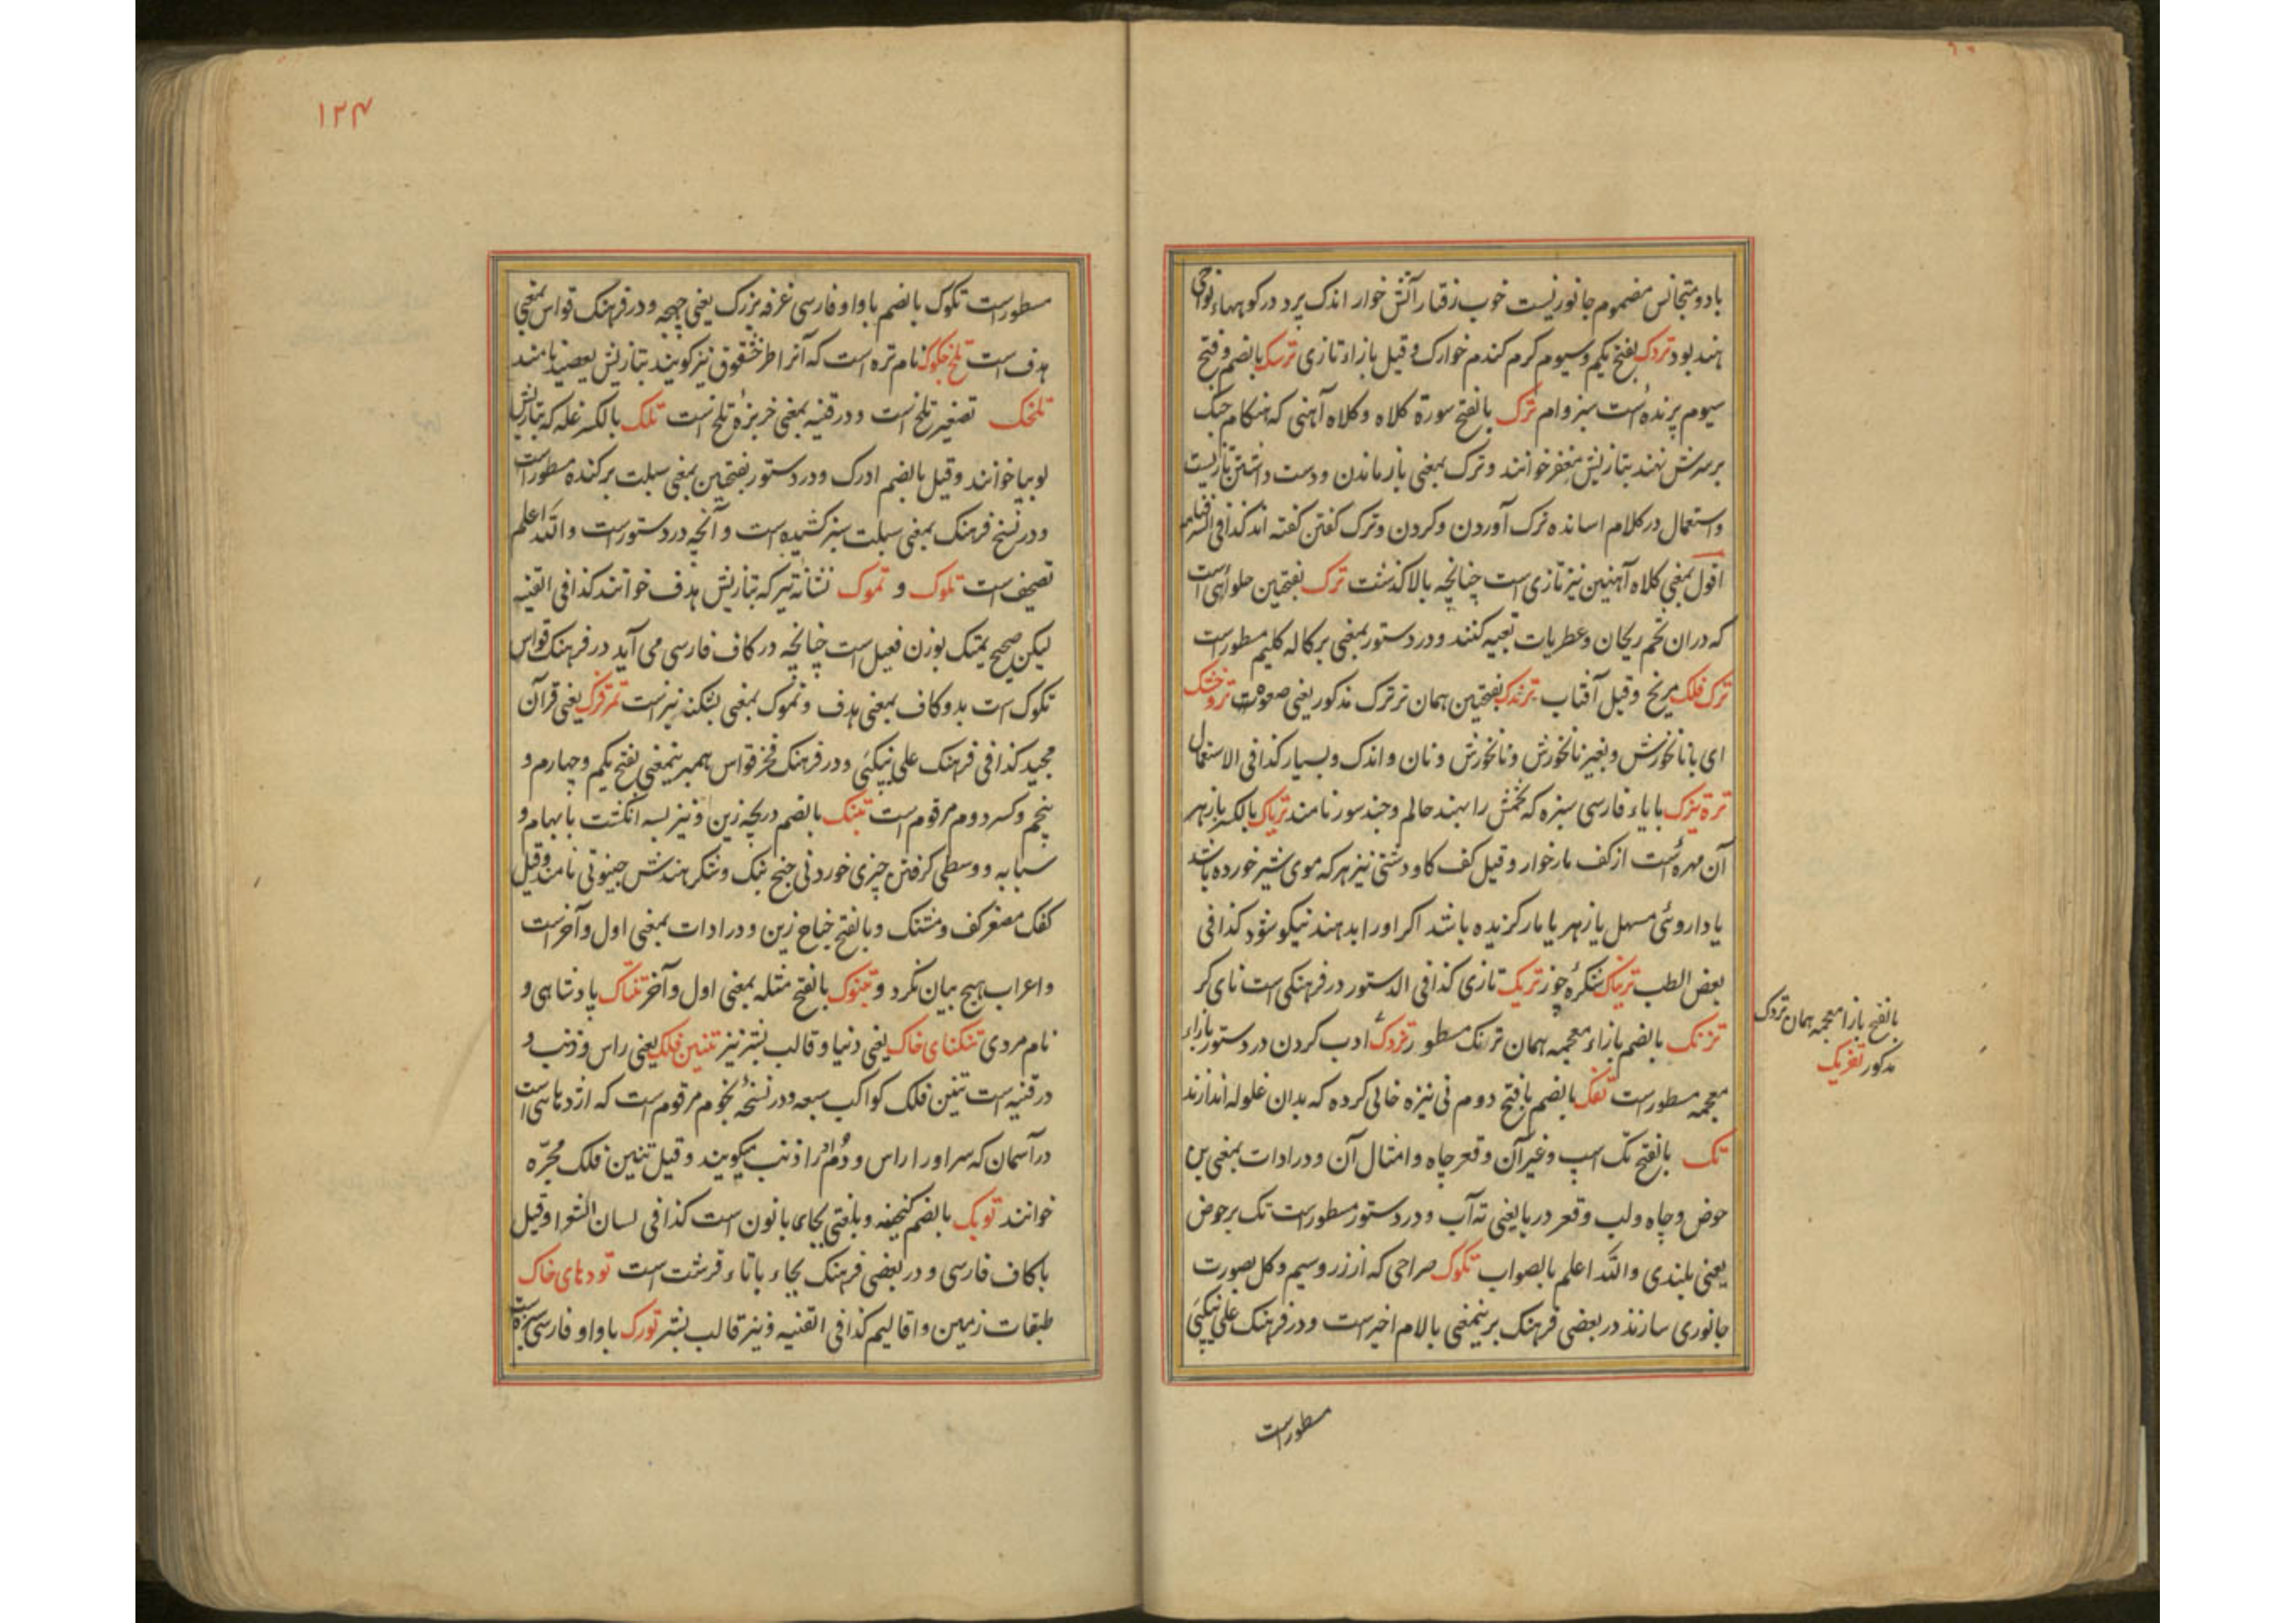 بادو متجانس مضموم جانوریست خوب رفتار آتش خوار اندک پرد در کوههاء نواحی
هند بود تردک بفتح یکم و سیوم کرم کندم خوارک و قیل بازاء تازی ترسک بالضم و فتح
سیوم پرنده است سبز وام ترک بالفتح سورة کلاه و کلاه آهنی که هنکام جنک
برسرش نهند بتازیش مغفر خوانند و ترک بمعنی باز ماندن و دست داشتن تازیست
و استعمال در کلام اساتذه ترک آوردن و کردن و ترک کفتن کفته اند کذا فی
اقول بمعنی کلاه آهنین نیز تازی است چنانچه بالا کذشت ترک بفتحتین حلوائی است
که دران تخم ریحان و عطریات تعبیه کنند و در دستور بمعنی برکاله کلیم مسطورست
ترک فلک مریخ و قیل آفتاب ترندک بفتحتین همان ترترک مذکور یعنی صعوه تروخشک
ای با نانخورش و بغیر نانخورش و نانخورش و نان و اندک و بسیار کذا فی الاستعمال
ترة تیزک با یاء فارسی سبزه که تخمش را بهند حالم و چندسور نامند تریاک بالکسر بازهر
آن مهره است از کف مارخوار و قیل کف کاو دشتی نیز هرکه موی شیر خورده باشد
یا داروئی مسهل یا زهر یا مار کزیده باشد اکر او را بدهند نیکو شود کذا فی
بعض الطب تریاک تریک تازی کذا فی الدستور در فرهنکی است نای کر
تزنک بالضم بازاء معجمه همان ترنک مسطور تزدک ادب کردن در دستور بازاء
معجمه مسطورست تفک بالضم با فتح دوم نی نیزه خالی کرده که بدان غلوله اندازند
تک بالفتح تک اسپ و غیر آن و قعر چاه و امثال آن و در ادات بمعنی بن
حوض و چاه و لب و قعر دریا یعنی ته آب و در دستور مسطورست تک بر حوض
یعنی بلندی و الله اعلم بالصواب تکوک صراحی که از زر و سیم و کل بصورت
جانوری سازند در بعضی فرهنک برینمعنی بالام اخیرست و در فرهنک علی نیکپی
بالفتح بازا معجمه همان تردک
مذکور تغریک
مسطورست
۱۲۴
مسطورست تکوک بالضم باواو فارسی غرفه بزرک یعنی چهجه و در فرهنک قواس بمعنی
هدف است تلخ جکوک نام تره است که آنرا طرخشقوق نیز کویند بتازیش یعضید نامند
تلخک تصغیر تلخ است و در قنیه بمعنی خربزهٔ تلخ است تلک بالکسر غله که بتازیش
لوبیا خوانند و قیل بالضم ادرک و در دستور بفتحتین بمعنی سبلت برکنده مسطورست
و در نسخ فرهنک بمعنی سبلت سبز کشیده است و آنچه در دستورست و الله اعلم
تصحیف است تلوک و تموک نشانه تیر که بتازیش هدف خوانند کذا فی القنیه
لیکن صحیح یمتک بوزن فعیل است چنانچه در کاف فارسی می آید در فرهنک قواس
تکوک است بدو کاف بمعنی هدف و تموک بمعنی بشکند نیزست تمرقرک یعنی قرآن
مجید کذا فی فرهنک علی نیکپی و در فرهنک فخر قواس همبرینمعنی بفتح یکم و چهارم و
پنجم و کسر دوم مرقوم است تبنک بالضم دریچه زین و نیز بسه انکشت بابهام و
سبابه و وسطی کرفتن چیزی خوردنی هندش چینوتی نامند و قیل
کفک مصغر کف و مشتنک و بالفتح جناح زین و در ادات بمعنی اول و آخرست
و اعراب هیچ بیان نکرد و تبنوک بالفتح مثله بمعنی اول و آخر تنناک پادشاهی و
نام مردی تنکنای خاک یعنی دنیا و قالب بشر نیز تنین فلک یعنی راس و ذنب و
در قنیه است تنین فلک کواکب سبعه و در نسخهٔ نجوم مرقوم است که اژدهائی است
در آسمان که سر او را راس و دم او را ذنب میکویند و قیل تنین فلک مجره
خوانند توبک بالضم کنجفه و بلغتی بجای با نون است کذا فی لسان الشعرا و قیل
با کاف فارسی و در بعضی فرهنک بجاء با تاء قرشت است تودهای خاک
طبقات زمین و اقالیم کذا فی القنیه و نیز قالب بشر تورک باواو فارسی